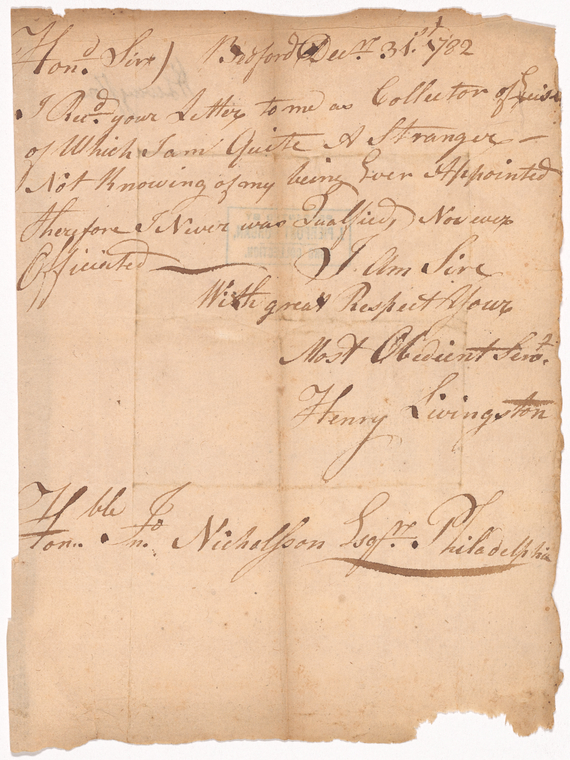 Hon.d Sir) Bedford Dec.r 31.st 1782
I Rec.d your Letter to me as Collector of Exise
of Which I am Quite A Stranger —
Not Knowing of my being Ever Appointed
therefore I Never was Qualfied, Nor ever
Officiated —
I Am Sire
With great Respect Your
Most Obedient Serv.t
Henry Livingston
Hble
Hon.. Jn.o Nicholsson Esq.r Philadelphia